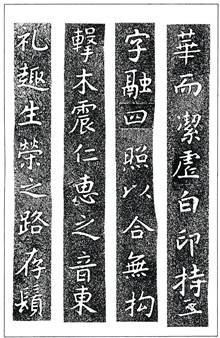 華而潔虛白印持五
字融四照以合無抅
擊木震仁惠之音東
礼趣生榮之路存鬚